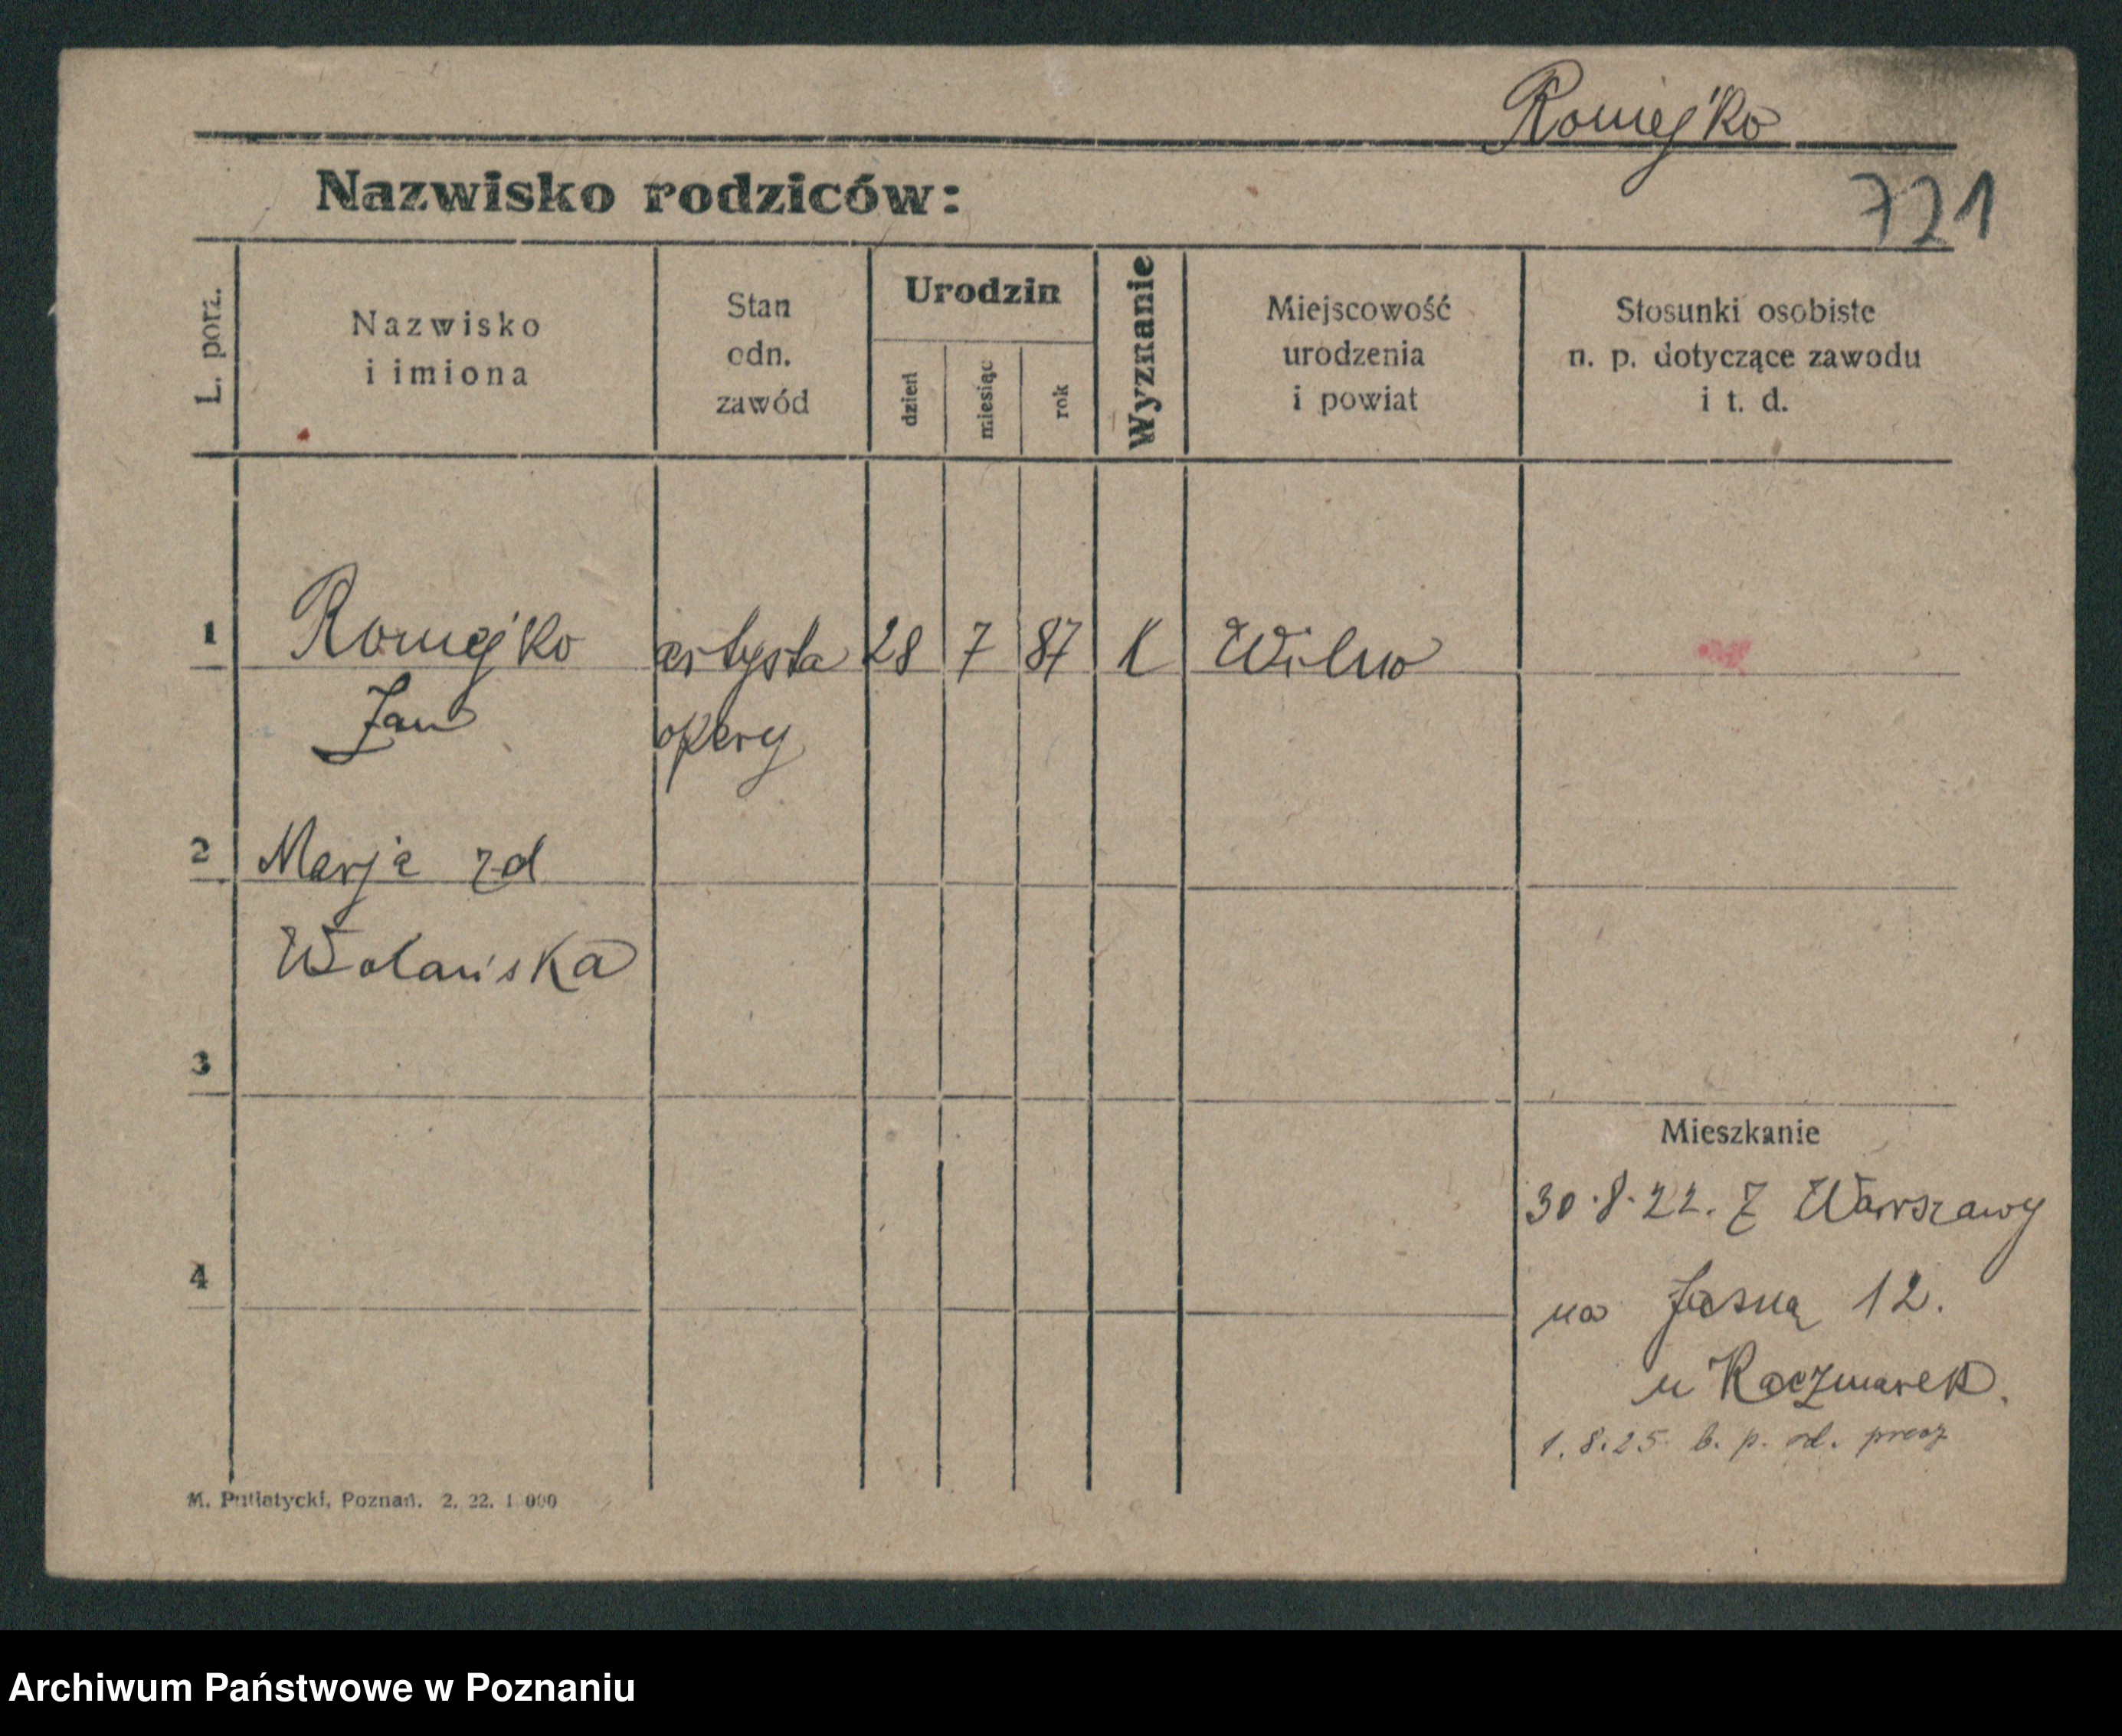 Romejko
Nazwisko rodziców:
721
L. porz.
Nazwisko
i imiona
Stan
odn.
zawód
Urodzin
dzień
miesiąc
rok
Wyznanie
Miejscowość
urodzenia
i powiat
Stosunki osobiste
n. p. dotyczące zawodu
i t. d.
1 Romejko artysta 28 7 87 K Wilno
Jan opery
2 Marja zd
Wolańska
3
Mieszkanie
30.8.22. Z Warszawy
4
na Jasną 12.
u Kaczmarek.
1.8.25 b. p. od. precz
M. Putiatycki, Poznań. 2. 22. 1 000
Archiwum Państwowe w Poznaniu